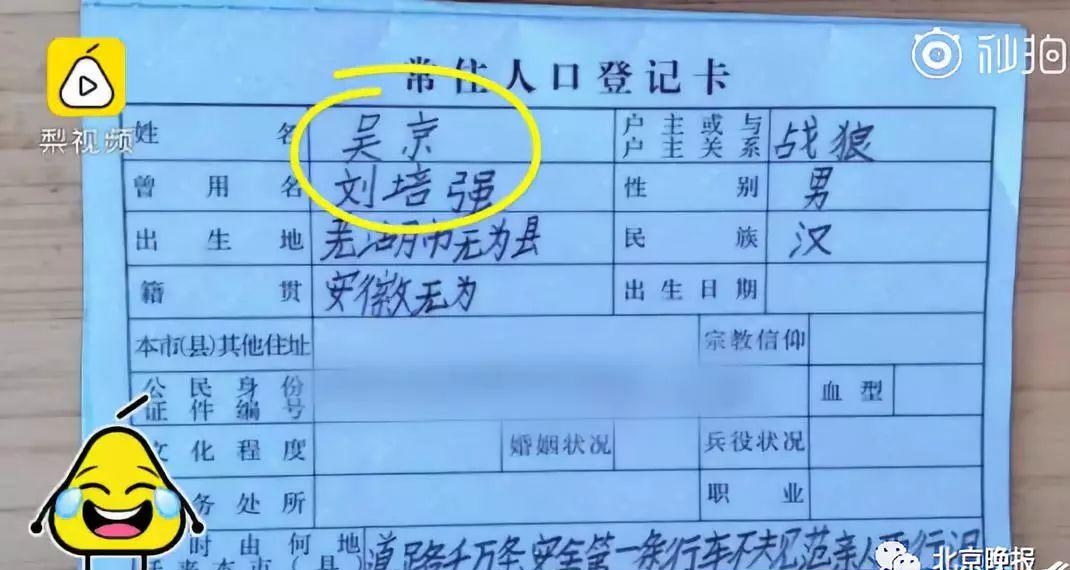 秒拍
梨视频
常住人口登记卡
姓名 吴京 户主或与户主关系 战狼
曾用名 刘培强 性别 男
出生地 芜湖市无为县 民族 汉
籍贯 安徽无为 出生日期
本市(县)其他住址 宗教信仰
公民身份证件编号 血型
文化程度 婚姻状况 兵役状况
务处所 职业
时由何地
道路千万条安全第一条行车不规范亲人两行泪
北京晚报